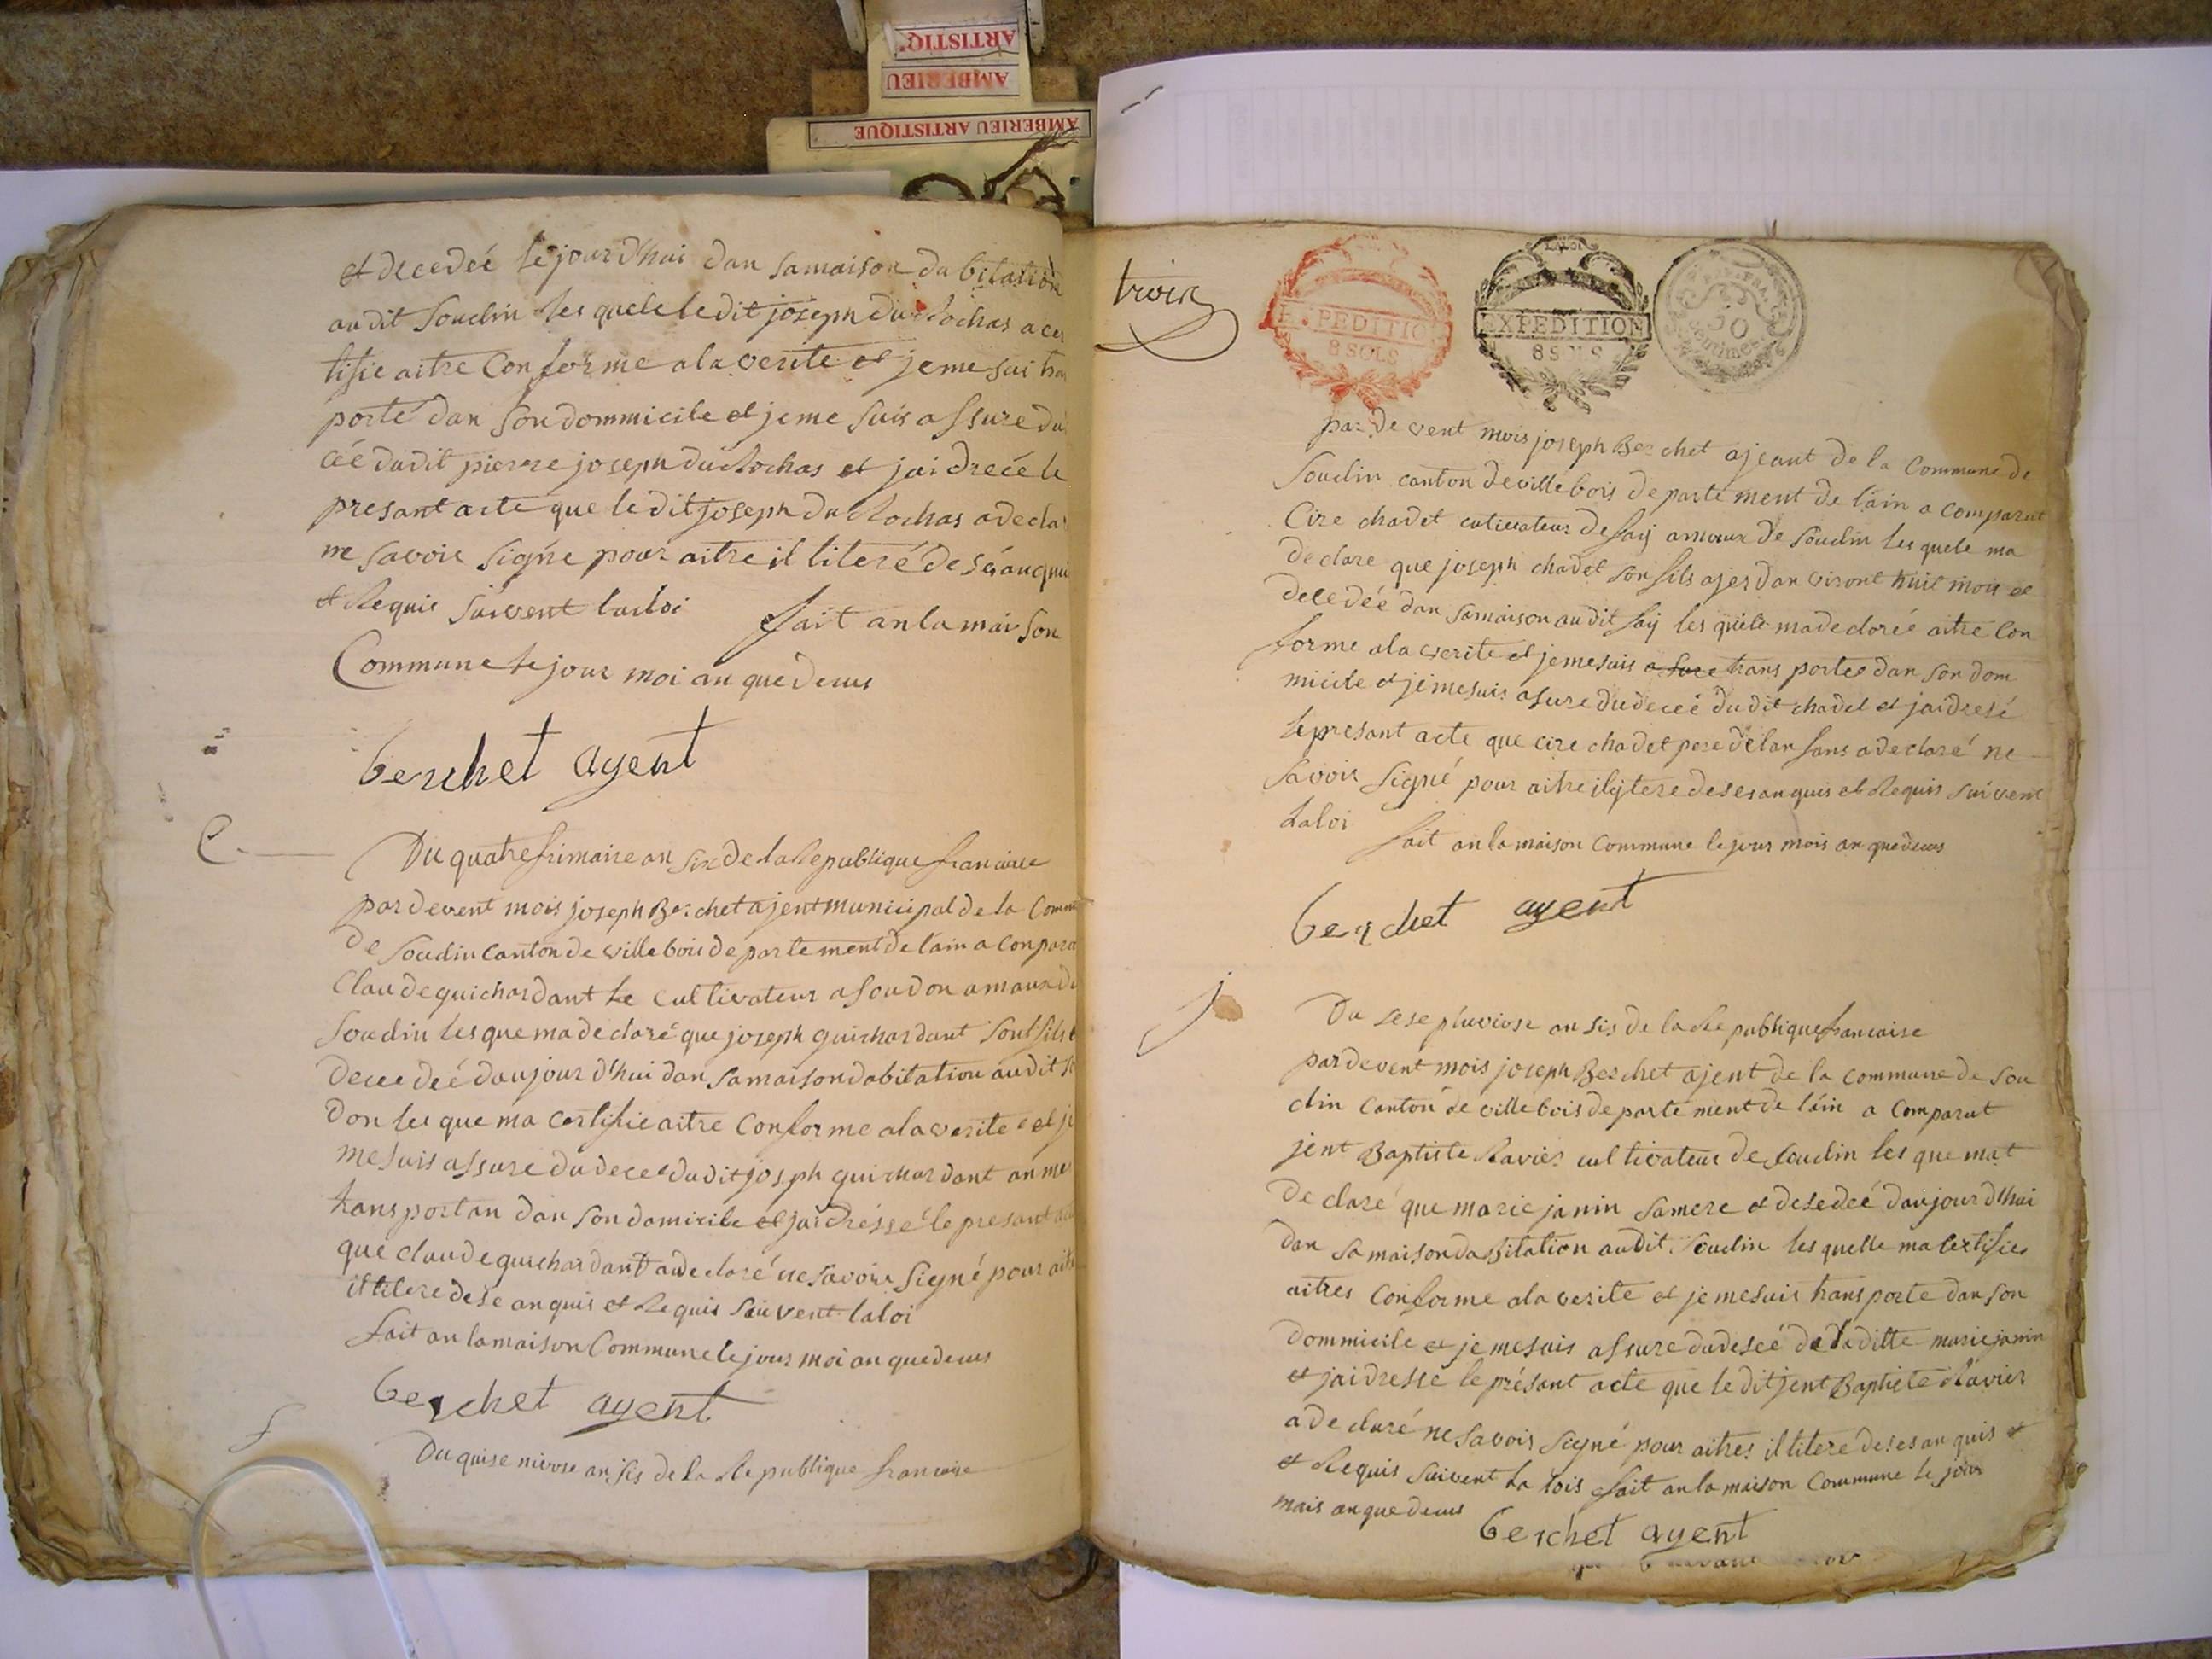 ARTISTIQ
AMBERIEU
AMBERIEU ARTISTIQUE
et decedéé le jour d'hui dan samaison dabitation
audit Soudin les quele le dit joseph du Rochas a cer
tifie aitre Conforme ala verite et jeme sui tran
porté dan son dommicile et jeme suis assure du
céé dudit pierre joseph du Rochas et jai drecé le
presant acte que le dit joseph du Rochas adecla
ne savoir signé pour aitre il literé de
et Requis suivent laloi fait an la maison
Commune le jour moi an que desus
berchet agent
C
Du quatre frimaire an six de la Republique francaise
par devent mois joseph Berchet ajent municipal de la Comm
de Soudin canton de villebois departement de l'ain a conparu
Claude guichardant le cultivateur a soudon amaux de
Soudin les que ma declaré que joseph guichardant sont fils e
decedéé daujour d'hui dan samaison dabitation audit so
don les que ma certifie aitre Conforme ala verite et je
me suis assure du decé dudit josph guichardant an me
transportan dan son domicile et jai dréssé le presant
que claude guichardant a declaré ne savoir signé pour aitre
il litere de se anquis et Requis suivent laloi
fait an lamaison Commune le jour moi an que desus
berchet agent
f
Du quise nivose an sis de la Republique francaise
trois
EXPEDITION
8 SOLS
LA LOI
EXPEDITION
8 SOLS
50
centimes
par devent mois joseph Berchet ajeant de la Commune de
Soudin canton de villebois departement de l'ain a comparut
Cire chadet cutivateur de faij amaux de Soudin les quele ma
declare que joseph chadet son fils ajes dan viront huit mois et
decedéé dan samaison audit faij les quele ma declaréé aitre Con
forme ala verite et jemesuis asure trans portes dan son dom
micile et jemesuis asure du deceé du dit chadet et jaidresé
le presant acte que cire chadet pere delanfans a declaré ne
savoir signé pour aitre ilijtere deses anquis et Requis suivent
Laloi fait an la maison Commune le jour mois an que desus
berchet agent
j
Du sese pluviose an sis de la Re publique francaise
par devent mois joseph Berchet ajent de la commune de Sou
din canton de villebois departement de l'ain a comparut
jent Baptiste Ravier cultivateur de soudin les que mat
declaré que marie janin samere et desedeé daujourd'hui
dan samaison dabitation audit Soudin les quelle ma certifier
aitres Conforme ala verite et je mesuis transporte dan son
dommicile et je mesuis assure du deseé de laditte marie janin
et jaidresse le présant acte que le dit jent Baptiste Ravier
a declaré ne savoir signé pour aitres il litere deses anquis et
et Requis suivent La lois fait an la maison Commune le jour
mois an que desus berchet agent